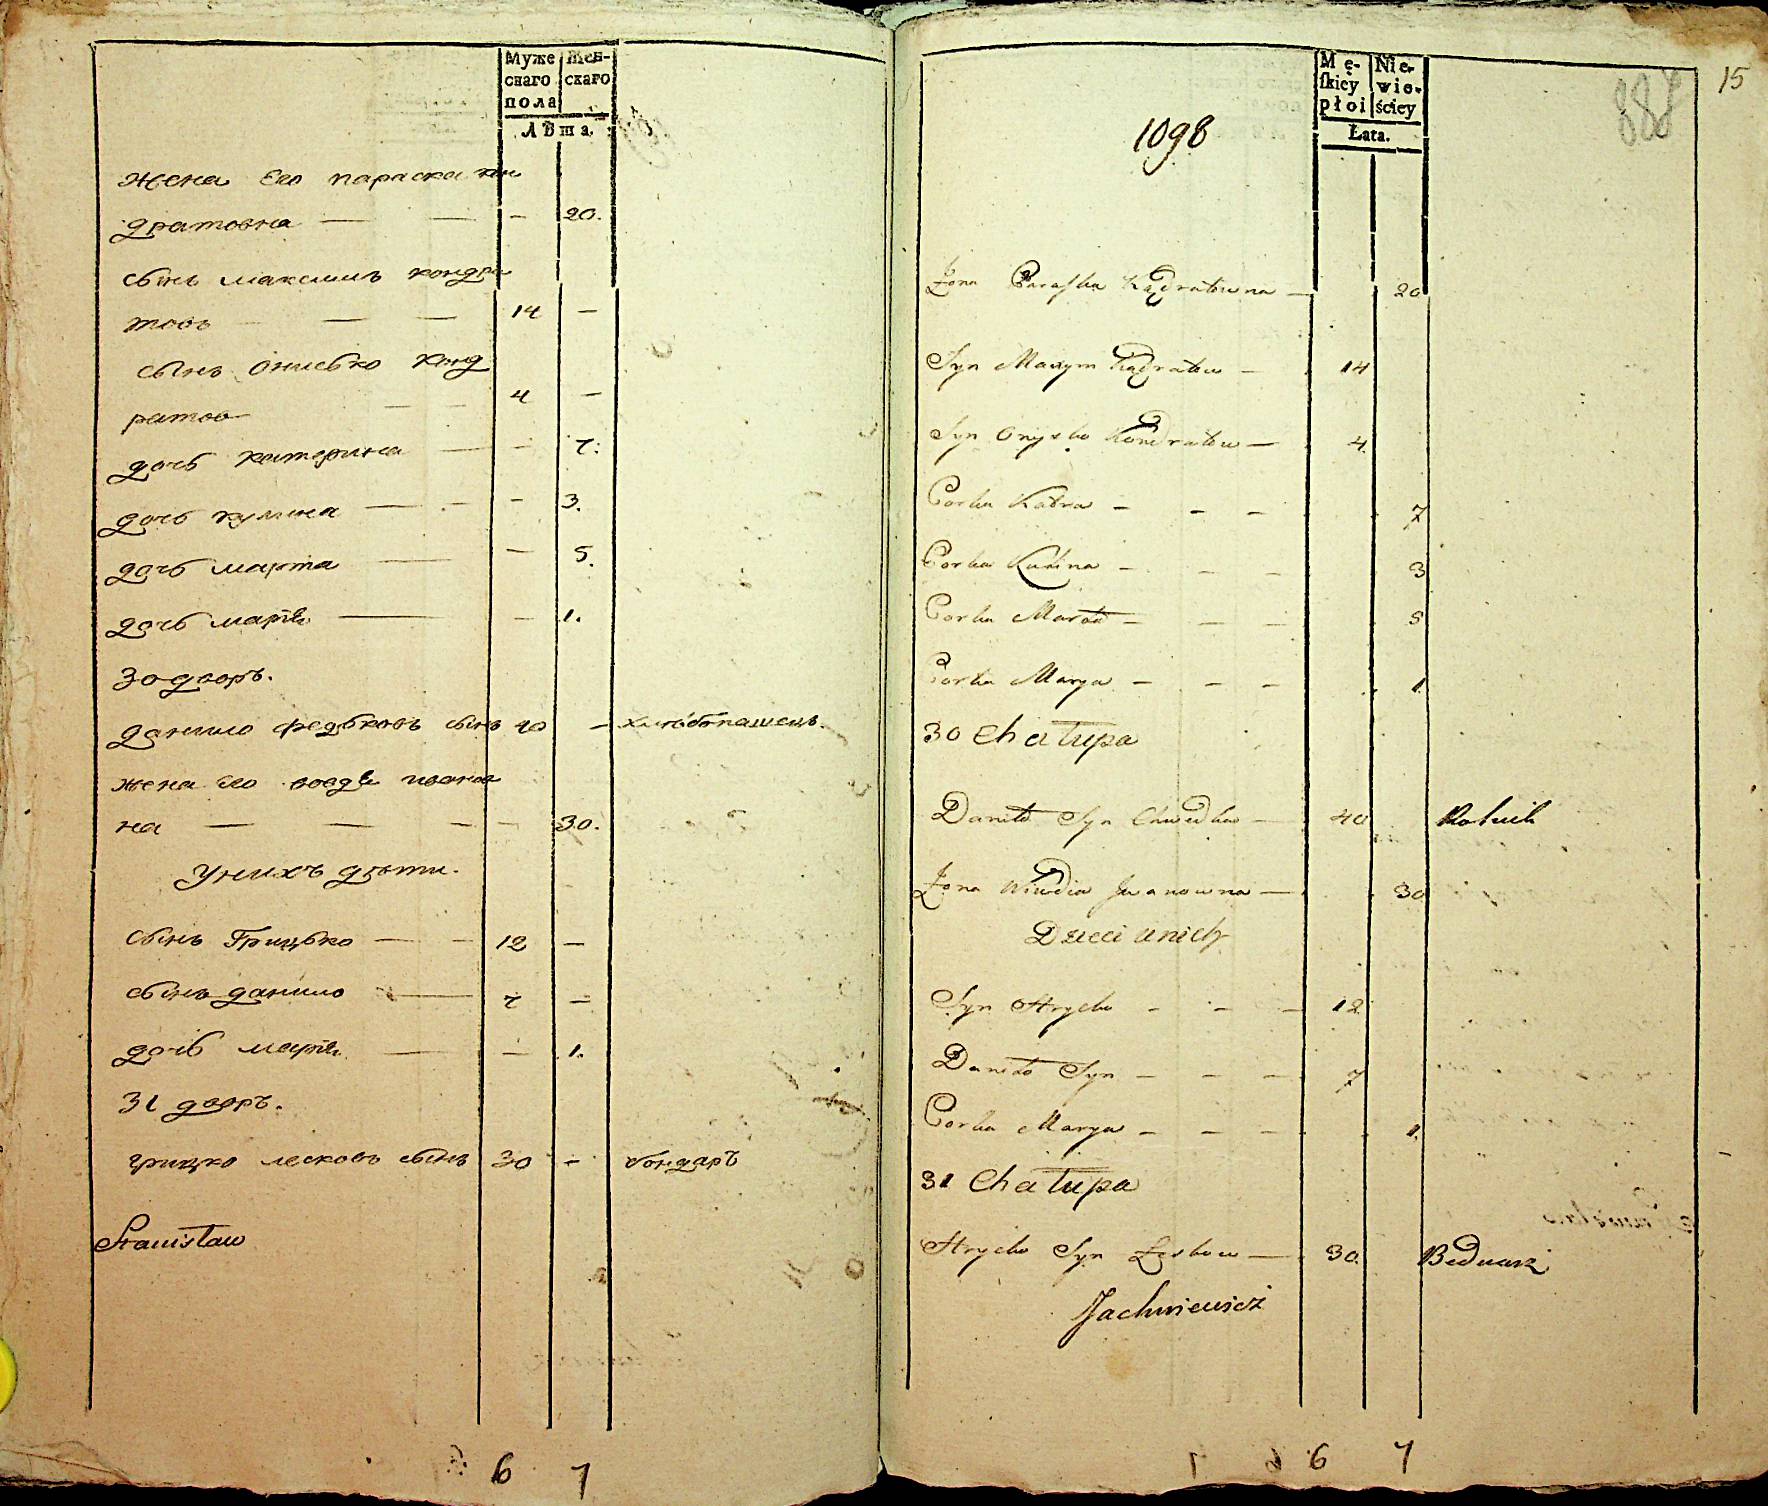 Муже Жен-
скаго скаго
пола
Лѣта.
жена Его параска кон
дратовна — — — 20.
сынъ максимъ кондра
товъ — — — 14 —
сынъ Онисько Конд
ратов — — 4 —
дочь катерина — — 7.
дочь кулина — — — 3.
дочь марта — — 5.
дочь марѣя — — 1.
30 дворъ.
данило федковъ сынъ 40 — хлѣбопашецъ.
жена Его вовдѧ иванов
на — — — — 30.
Унихъ дѣти.
сынъ Грицько — — 12 —
сынъ данило — 7 —
дочь марѣя — — 1.
31 дворъ.
грицко лесковъ сынъ 30 — бондаръ
Stanisław
6 7
15
Mę- Nie-
skiey wie-
płci ściey
Łata.
1098
Żona Paraska Kądratowna — 20
Syn Maxym Kądratow — 14
Syn Onysko Kondratow — 4.
Corka Katra — — — 7
Corka Kulina — — — 3
Corka Marta — — — 5
Corka Marya — — — 1
30 Chałupa
Daniło Syn Chwedkow — 40 Rolnik
Żona Wiwdia Jwanowna — 30
Dzieci unich
Syn Hrycko — — — 12
Daniło Syn — — — 7
Corka Marya — — — 1.
31 Chałupa
Hrycko Syn Leskow — 30. Bednarz
Jachniewicz
6 7